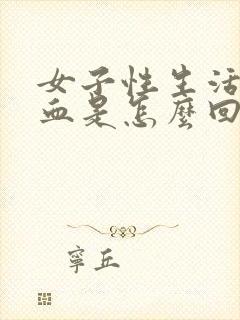 女子性生活
血是怎麼回
寧丘